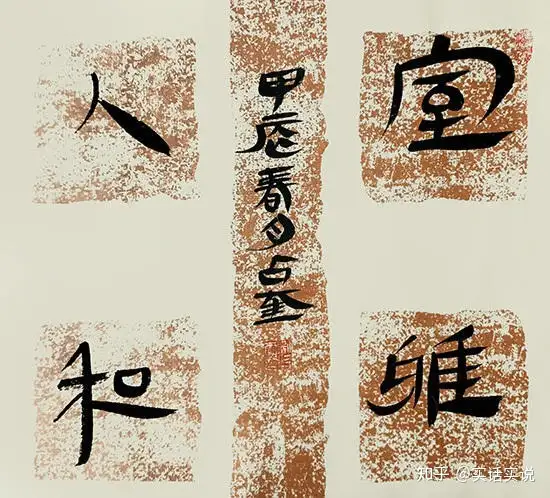 室
雅
人
和
甲辰春月占
知乎 @实话实说